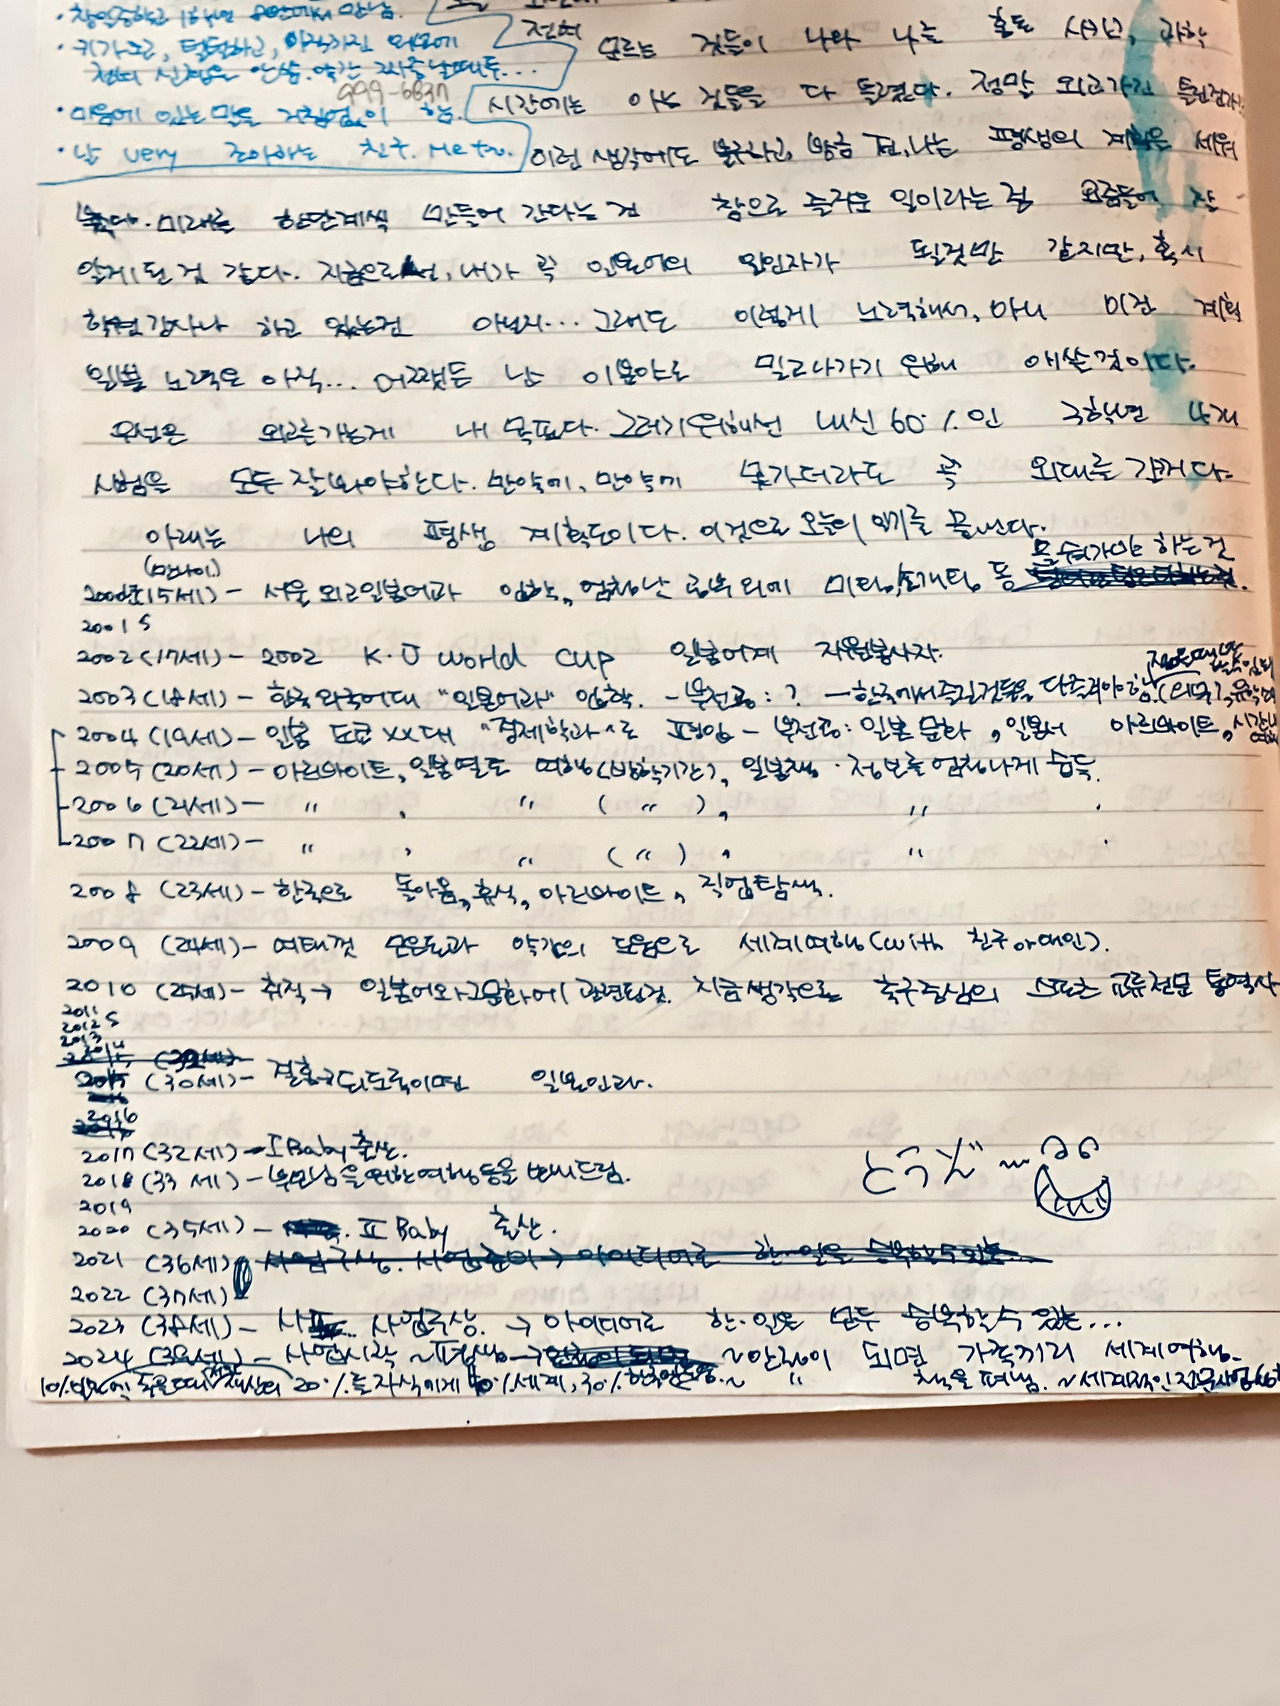 · 키가 크고, 털털하고,
전혀 신경을 안씀. 약간 짜증날때두...
999-6637
· 마음에 있는 말을 거침없이 함.
· 날 very 조아하는 친구. Me too.
전혀 모르는 것들이 나와 나를 혼돈 시키고, 과학
시간에는 아는 것들을 다 틀렸다. 정말 외고가긴 틀린건가!
이런 생각에도 불구하고, 방금 전, 나는 평생의 계획을 세워
봤다. 미래를 한단계씩 만들어 간다는 건 참으로 즐거운 일이라는 걸 요즘들어 잘
알게 된 것 같다. 지금으로선, 내가 꼭 일본어의 위인자가 될것만 같지만, 혹시
하고 있는건 아닌지... 그래도 이렇게 노력해서, 아니 이건 계획
일뿐 노력은 아직... 어쨌든 난 이 분야로 밀고나가기 위해 애쓸 것이다.
우선은 외고를 가는게 내 목표다. 그러기 위해선 내신 60%인 3학년 4개
시험을 모두 잘 봐야 한다. 만약에, 만약에 못가더라도 꼭 외대를 갈거다.
아래는 나의 평생 계획도이다. 이것으로 오늘의 일기를 끝낸다.
(만나이)
(15세) - 서울 외고 일본어과 입학, 엄청난 공부 외에 미팅, 소개팅 등 못해가야 하는건
2001 S
2002 (17세) - 2002 K·J World cup 일본어계 자원봉사자.
2003 (18세) - 한국 외국어대 "일본어과" 입학. - 부전공 : ? - 한국에서 즐길것들을 다 즐겨야함.
2004 (19세) - 일본 도쿄 XX대 "경제학과"로 편입 - 부전공: 일본 문화, 일본서 아르바이트,
2005 (20세) - 아르바이트, 일본 열도 여행 (방학기간), 일본책 · 정보를 엄청나게 습득.
2006 (21세) - 〃 , 〃 ( 〃 ), 〃 .
2007 (22세) - 〃 , 〃 ( 〃 ), 〃 .
2008 (23세) - 한국으로 돌아옴, 휴식, 아르바이트, 직업탐색.
2009 (24세) - 여태껏 모은돈과 약간의 도움으로 세계여행 (with 친구 or 애인).
2010 (25세) - 취직 → 일본어와 그 문화에 관련된것. 지금 생각으로는 축구 중심의 스포츠 교류전문 통역사
2011
2012 S
2013
2014
2015 (30세) - 결혼 → 되도록이면 일본인과.
2016
2017 (32세) - I Baby 출산.
2018 (33세) - 부모님을 위한 여행 등을 보내드림.
2019
2020 (35세) - II Baby 출산.
2021 (36세)
2022 (37세)
2023 (38세) - 사업구상. → 아이디어로 한·일을 모두 능욕할 수 있는...
2024 (39세) - 사업시작 ~평생 ~안정이 되면 가족끼리 세계여행.
책을 펴냄.
どうぞ~